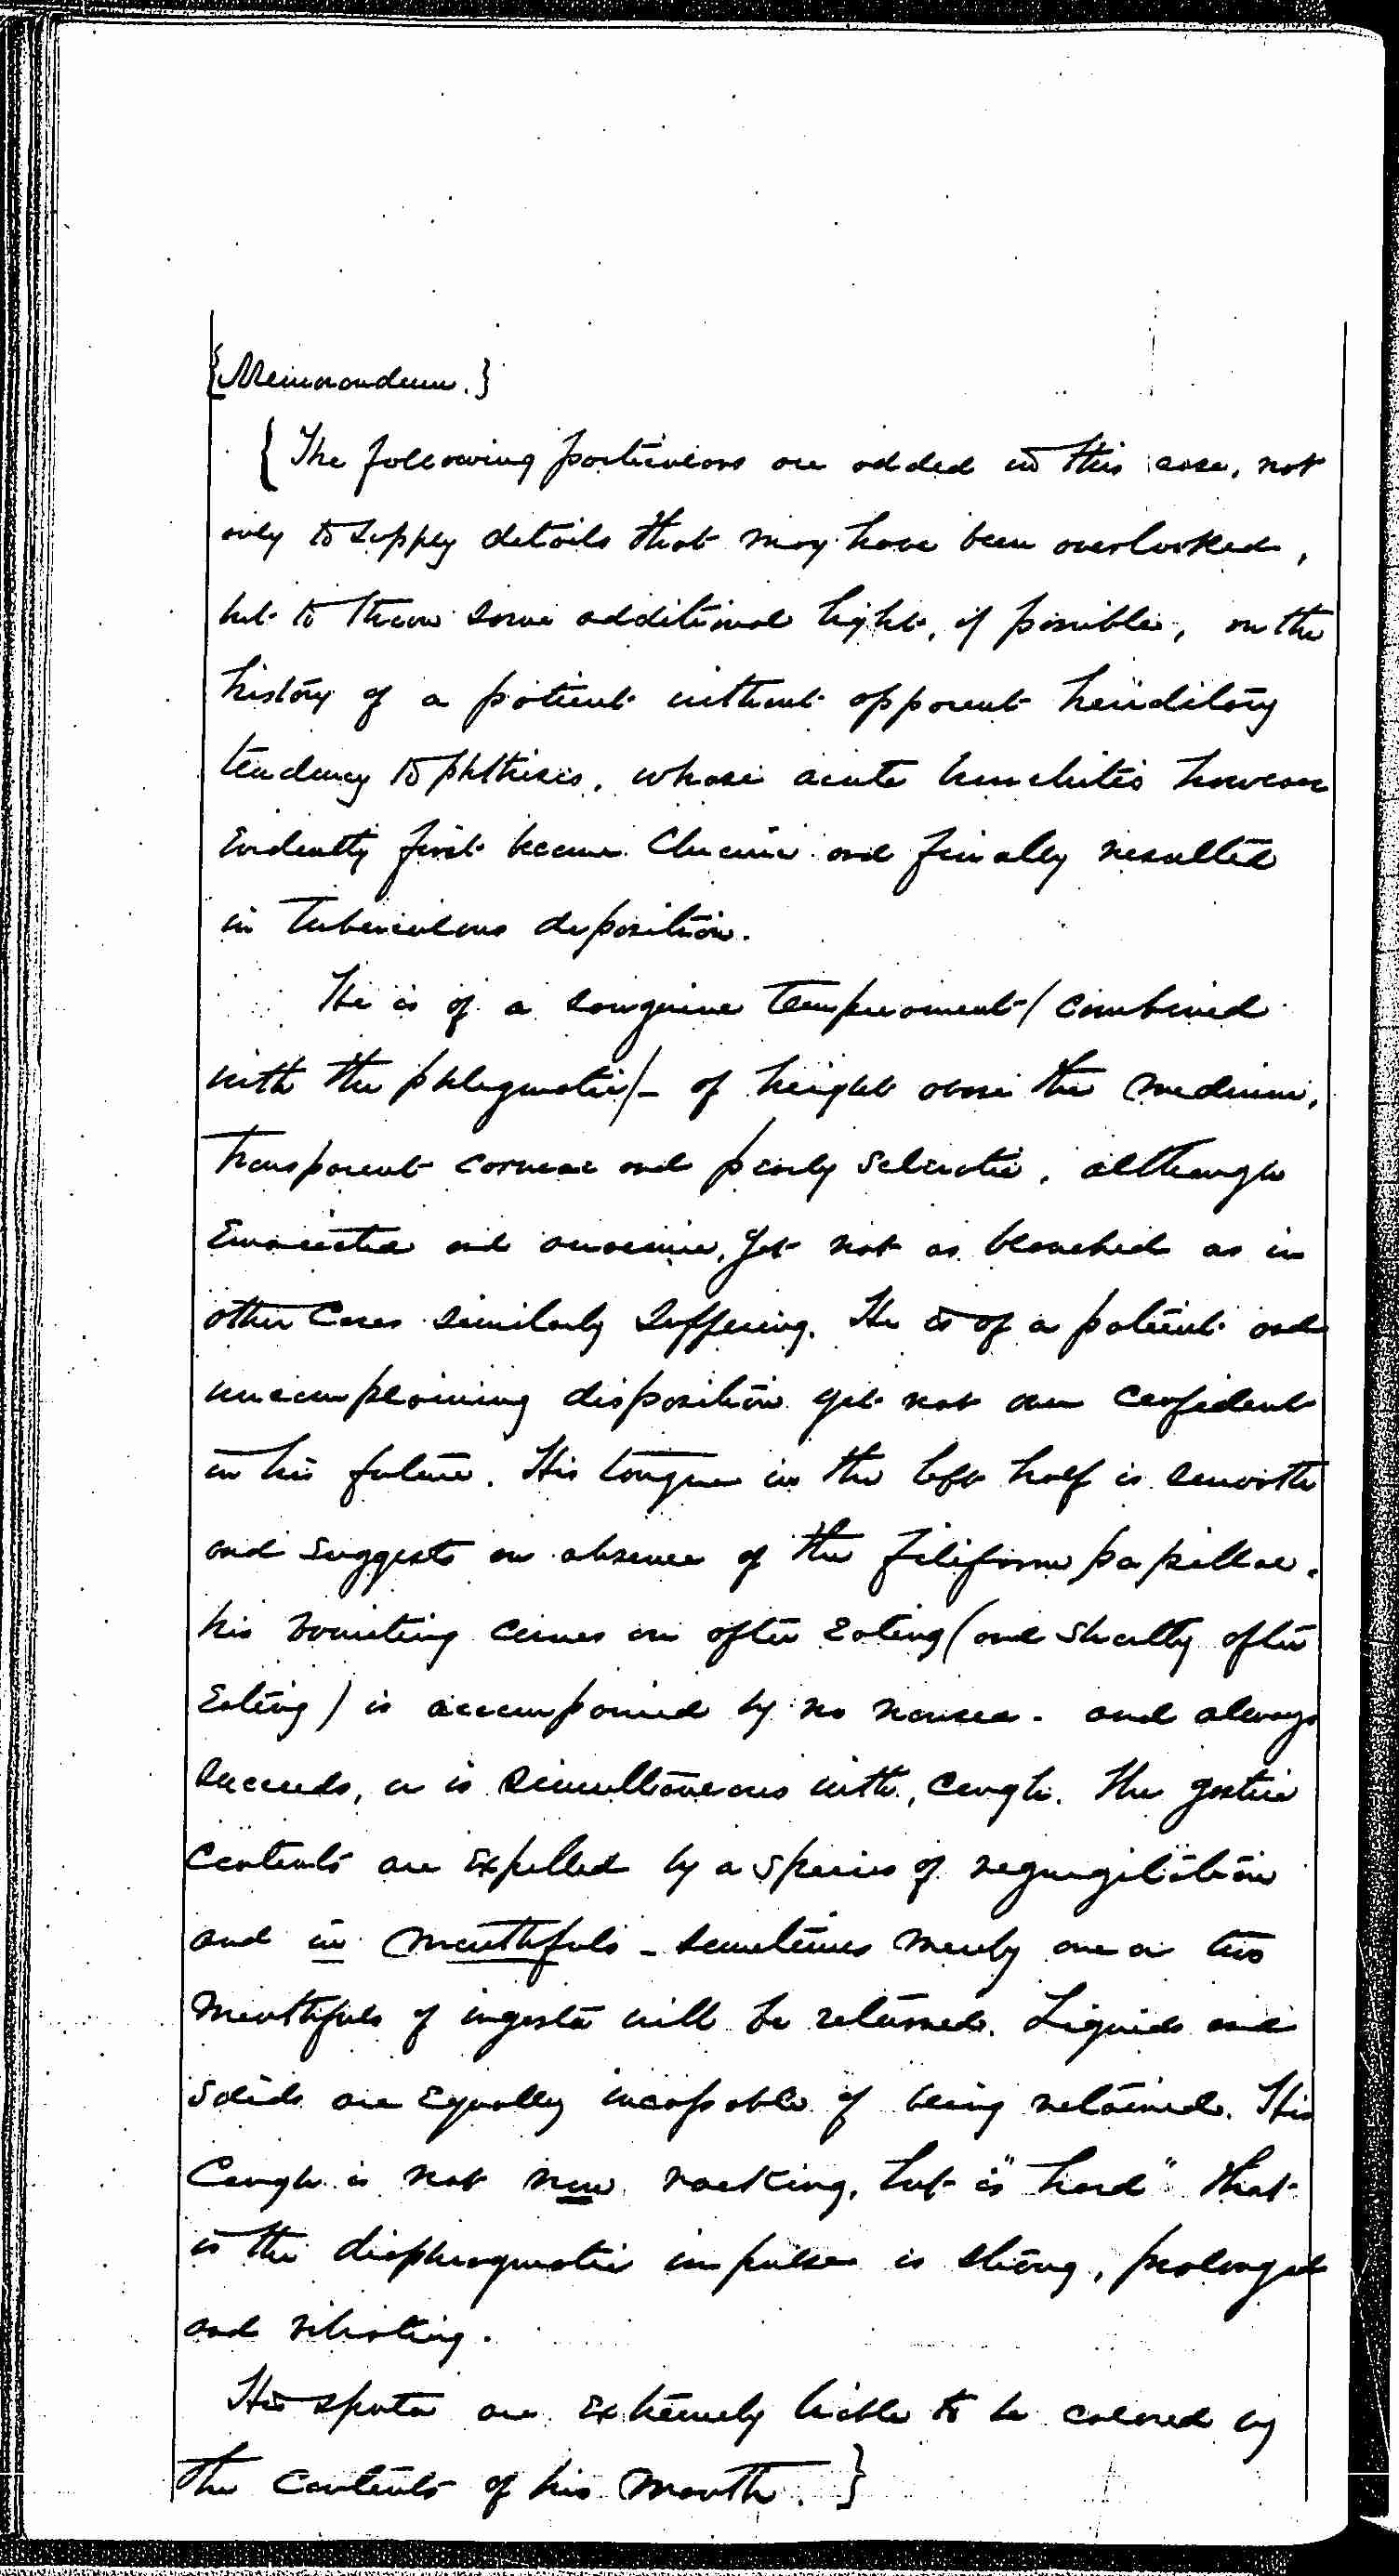 {Memorandum.}
{The following particulars are added in this case, not
only to supply details that may have been overlooked,
but to throw some additional light, if possible, on the
history of a patient without apparent hereditary
tendency to phthisis, whose acute bronchitis however
evidently first became Chronic and finally resulted
in tuberculous deposition.
He is of a sanguine temperament (combined
with the phlegmatic) – of height above the medium,
transparent corneae and pearly sclerotic, although
Emaciated and anaemic, yet not as blanched as in
other Cases similarly suffering. He is of a patient and
uncomplaining disposition yet not over confident
in his future. His tongue in the left half is smooth
and suggests an absence of the filiform papillae.
his vomiting comes on after Eating (and shortly after
Eating) is accompanied by no nausea - and always
succeeds, or is simultaneous with, cough. The gastric
Contents are Expelled by a species of regurgitation
and in mouthfuls - sometimes merely one or two
mouthfuls of ingesta will be returned. Liquids and
solids are Equally incapable of being retained. His
Cough is not now racking, but is "hard" that
is the diaphragmatic impulse is strong, prolonged
and vibrating.
His sputa are Extremely liable to be colored by
the Contents of his Mouth.}